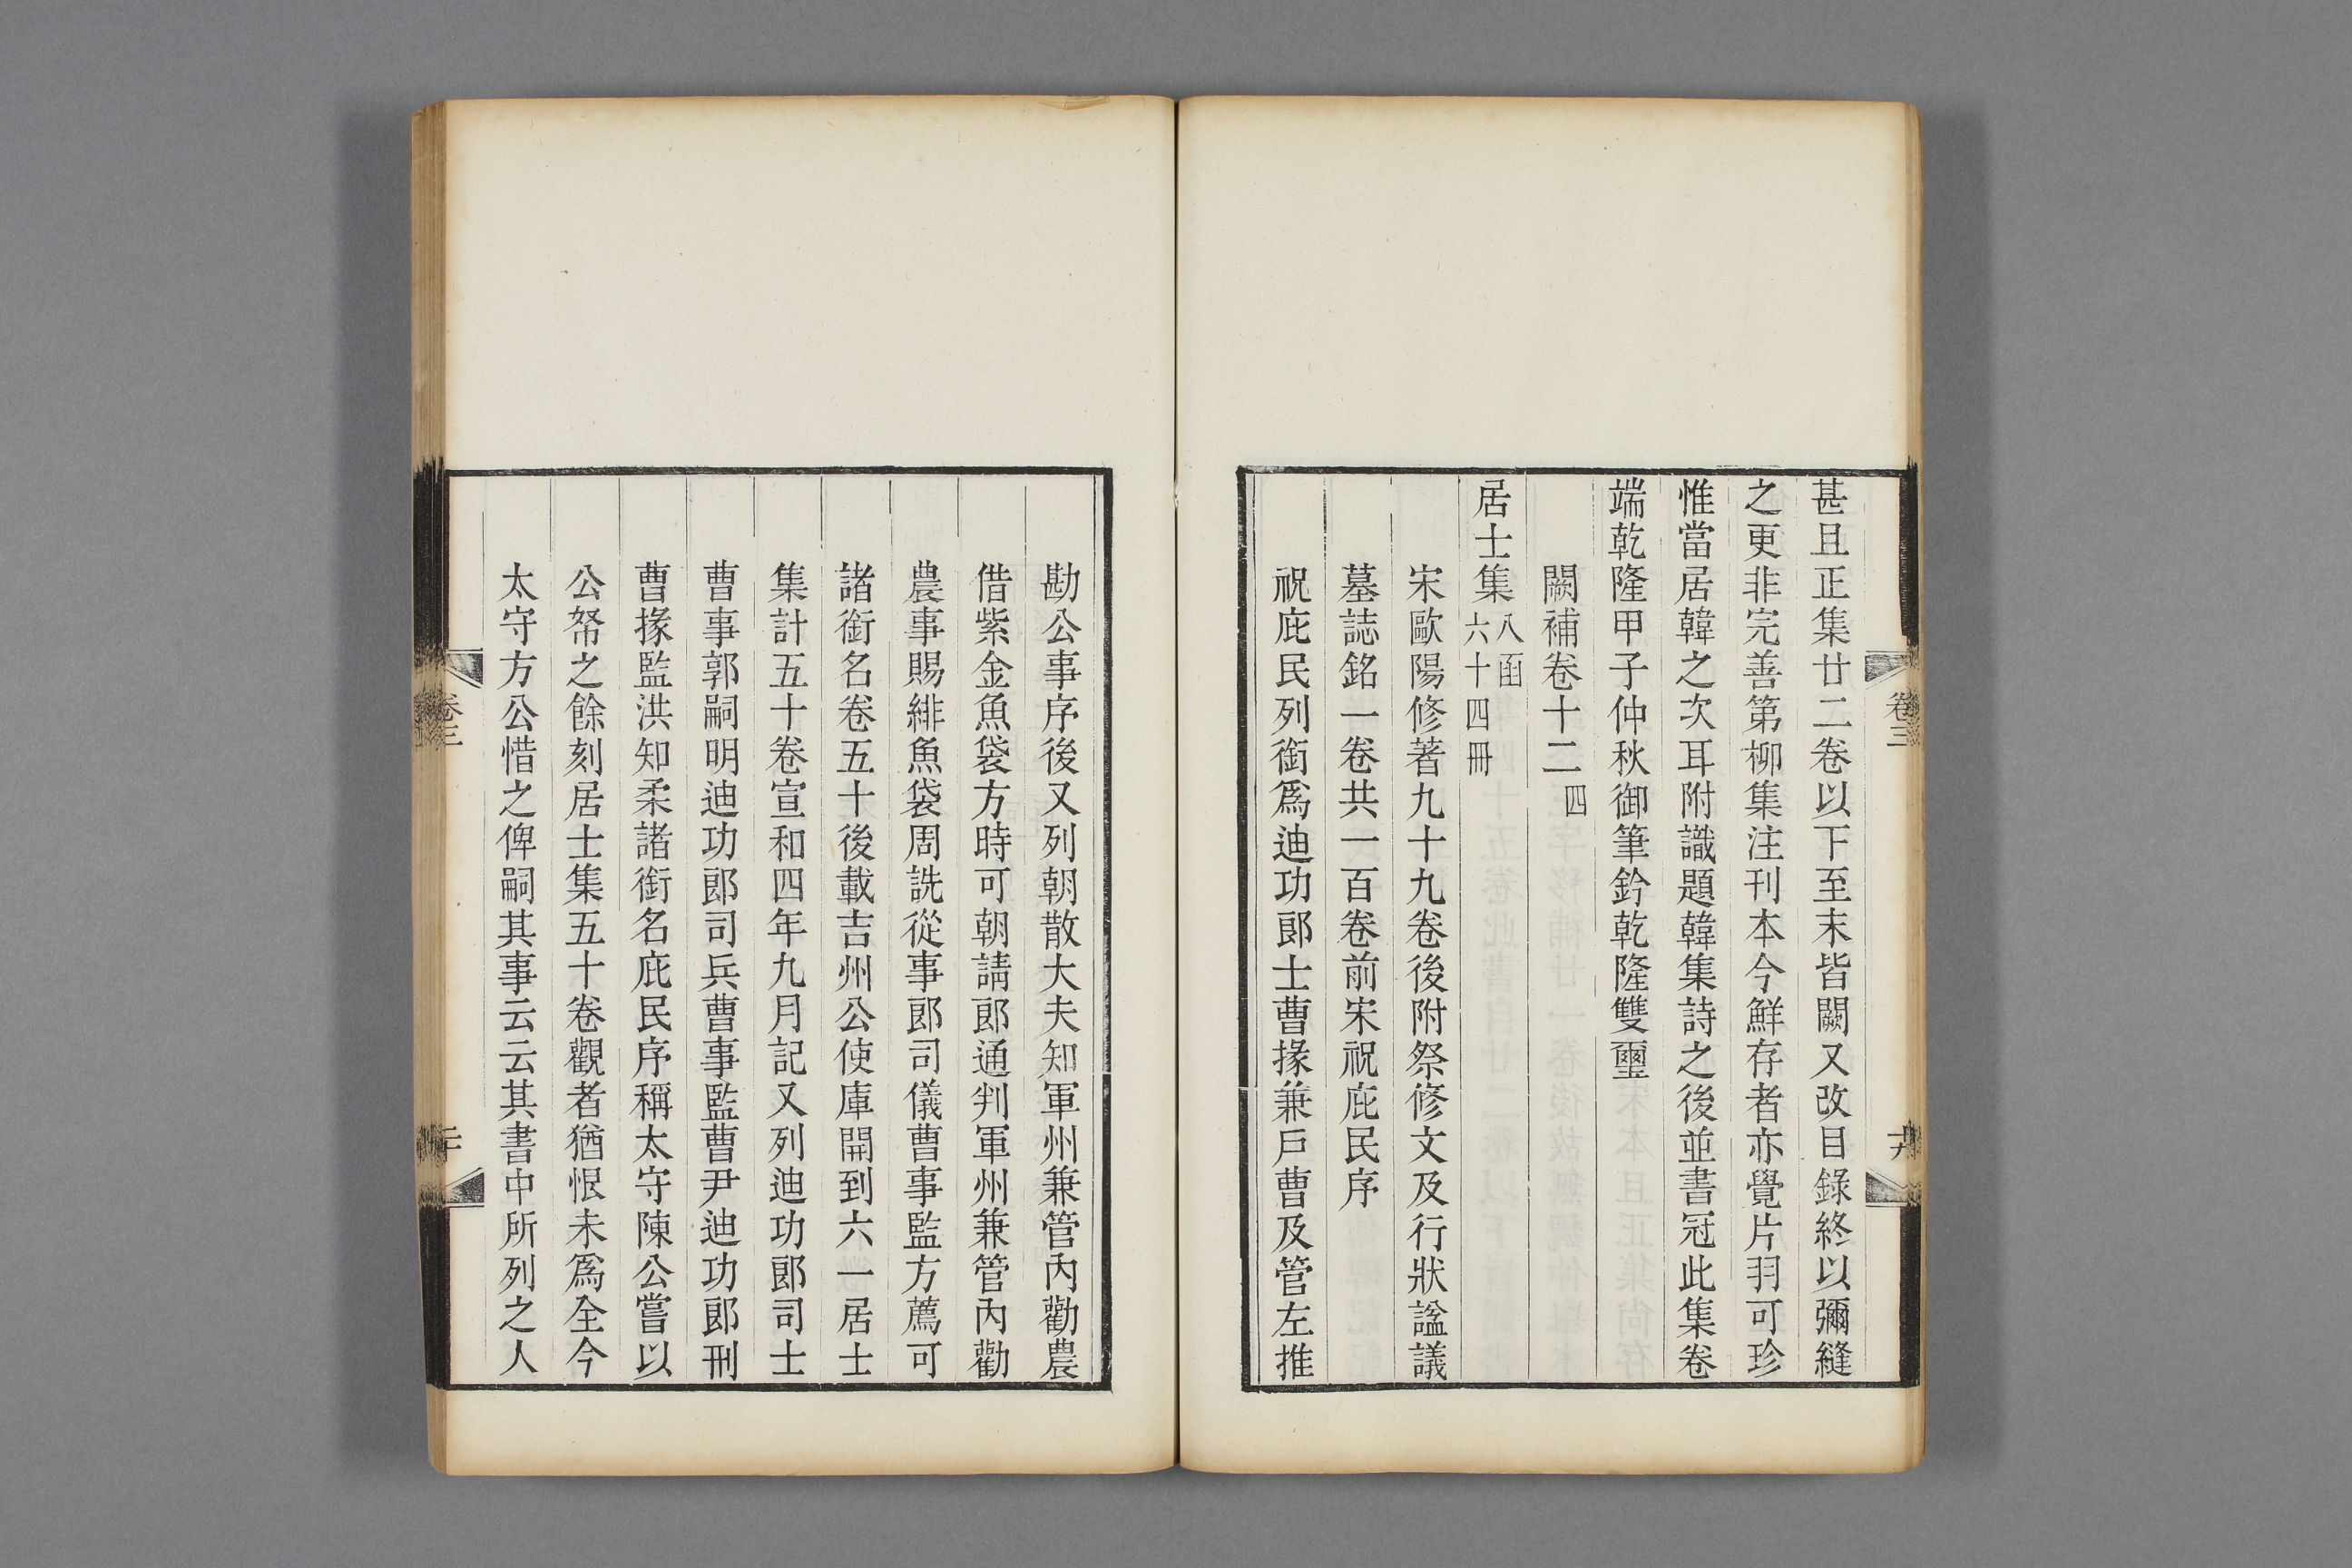 甚且正集廿二卷以下至末皆闕又改目錄終以彌縫
之更非完善第柳集注刊本今鮮存者亦覺片羽可珍
惟當居韓之次耳附識題韓集詩之後並書冠此集卷
端乾隆甲子仲秋御筆鈐乾隆雙璽
闕補卷十二四
居士集八函
六十四冊
宋歐陽修著九十九卷後附祭修文及行狀諡議
墓誌銘一卷共一百卷前宋祝庇民序
祝庇民列銜爲迪功郎士曹掾兼戶曹及管左推
卷三
十九
勘公事序後又列朝散大夫知軍州兼管內勸農
借紫金魚袋方時可朝請郎通判軍州兼管內勸
農事賜緋魚袋周詵從事郎司儀曹事監方薦可
諸銜名卷五十後載吉州公使庫開到六一居士
集計五十卷宣和四年九月記又列迪功郎司士
曹事郭嗣明迪功郎司兵曹事監曹尹迪功郎刑
曹掾監洪知柔諸銜名庇民序稱太守陳公嘗以
公帑之餘刻居士集五十卷觀者猶恨未爲全今
太守方公惜之俾嗣其事云云其書中所列之人
卷三
二十